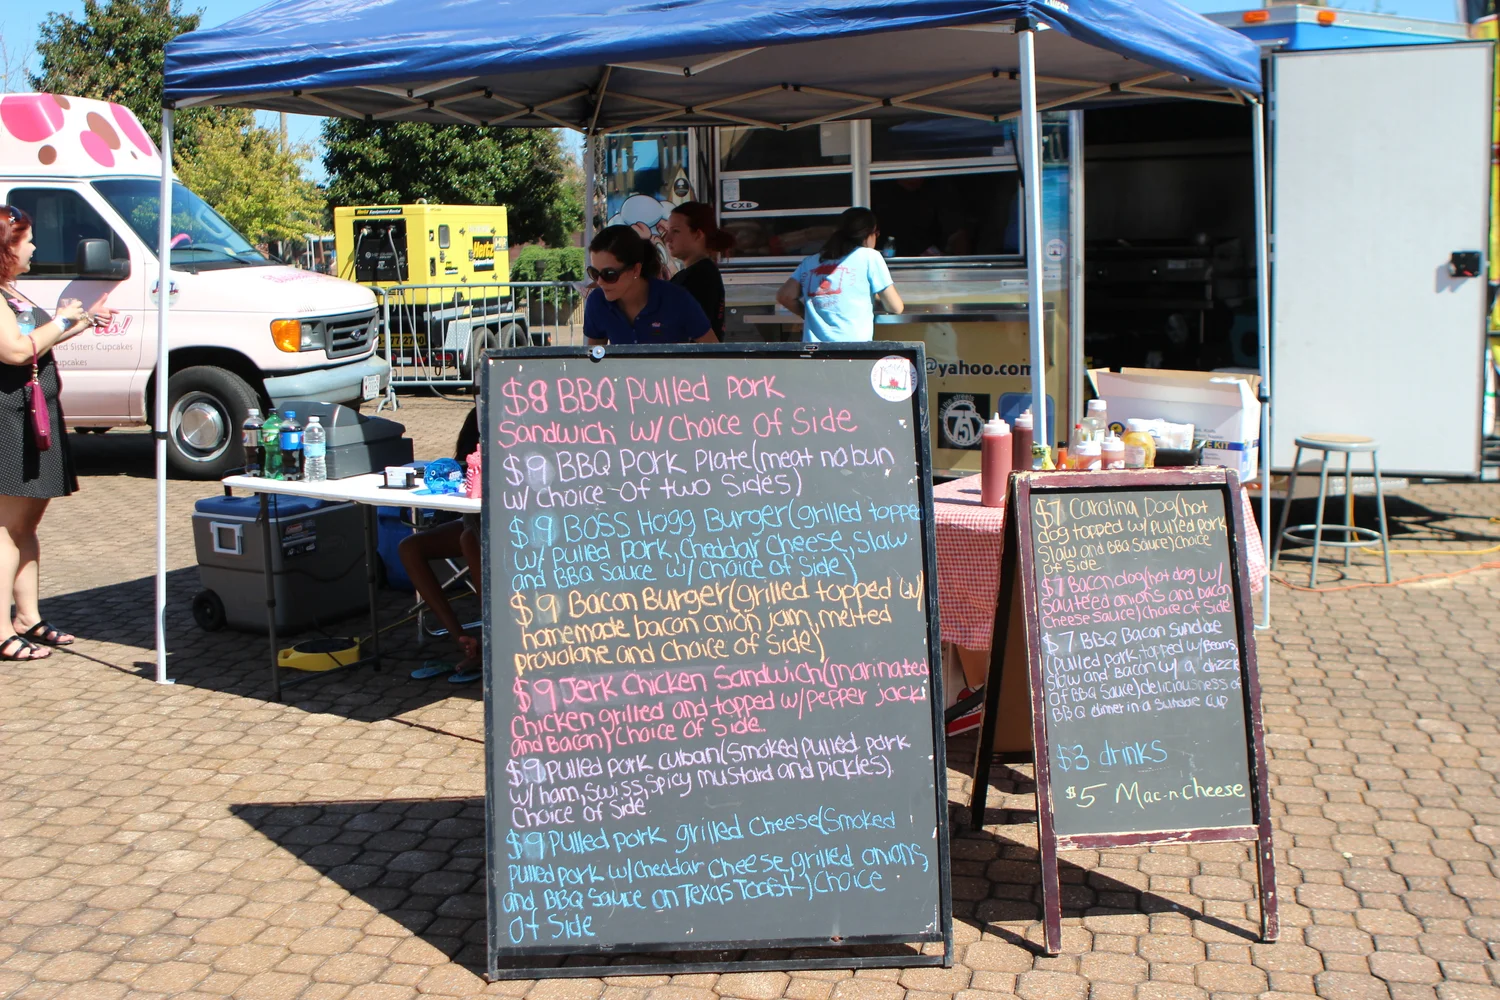 $8 BBQ Pulled Pork
Sandwich w/ Choice of Side
$9 BBQ Pork Plate(meat no bun
w/ choice of two Sides)
$9 Boss Hogg Burger(grilled topped
w/ pulled pork, Cheddar Cheese, Slaw
and BBQ Sauce w/ Choice of Side)
$9 Bacon Burger(grilled topped w/
homemade bacon onion jam, melted
provolone and Choice of Side)
$9 Jerk Chicken Sandwich(marinated
Chicken grilled and topped w/ pepper jack
and Bacon) Choice of Side.
$9 Pulled pork cuban(Smoked pulled pork
w/ ham, Swiss, Spicy mustard and pickles).
Choice of Side
$9 Pulled pork grilled Cheese(Smoked
pulled pork w/ Cheddar Cheese, grilled onions,
and BBQ Sauce on Texas Toast) Choice
Of Side
$7 Carolina Dog(hot
dog topped w/ pulled pork
Slaw and BBQ Sauce) Choice
of Side
$7 Bacon dog(hot dog w/
Sauteed onions and bacon
Cheese Sauce) Choice of Side
$7 BBQ Bacon Sundae
(pulled pork topped w/ Beans,
Slaw and Bacon w/ a drizzle
of BBQ Sauce) deliciousness of
BBQ dinner in a Sundae Cup
$3 drinks
$5 Mac-n-Cheese
@yahoo.com
75
CXB
Hertz
ted Sisters Cupcakes
upcakes